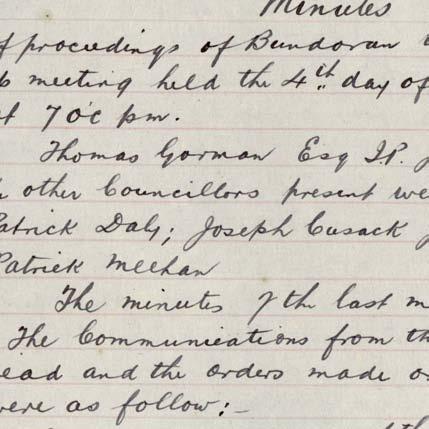 Minutes
of proceedings of Bundoran
meeting held the 4th day of
at 7 o'c pm.
Thomas Gorman Esq J.P.
other Councillors present we
Patrick Daly; Joseph Cusack
Patrick Meehan
The minutes of the last m
The Communications from th
ead and the orders made o
were as follow:-